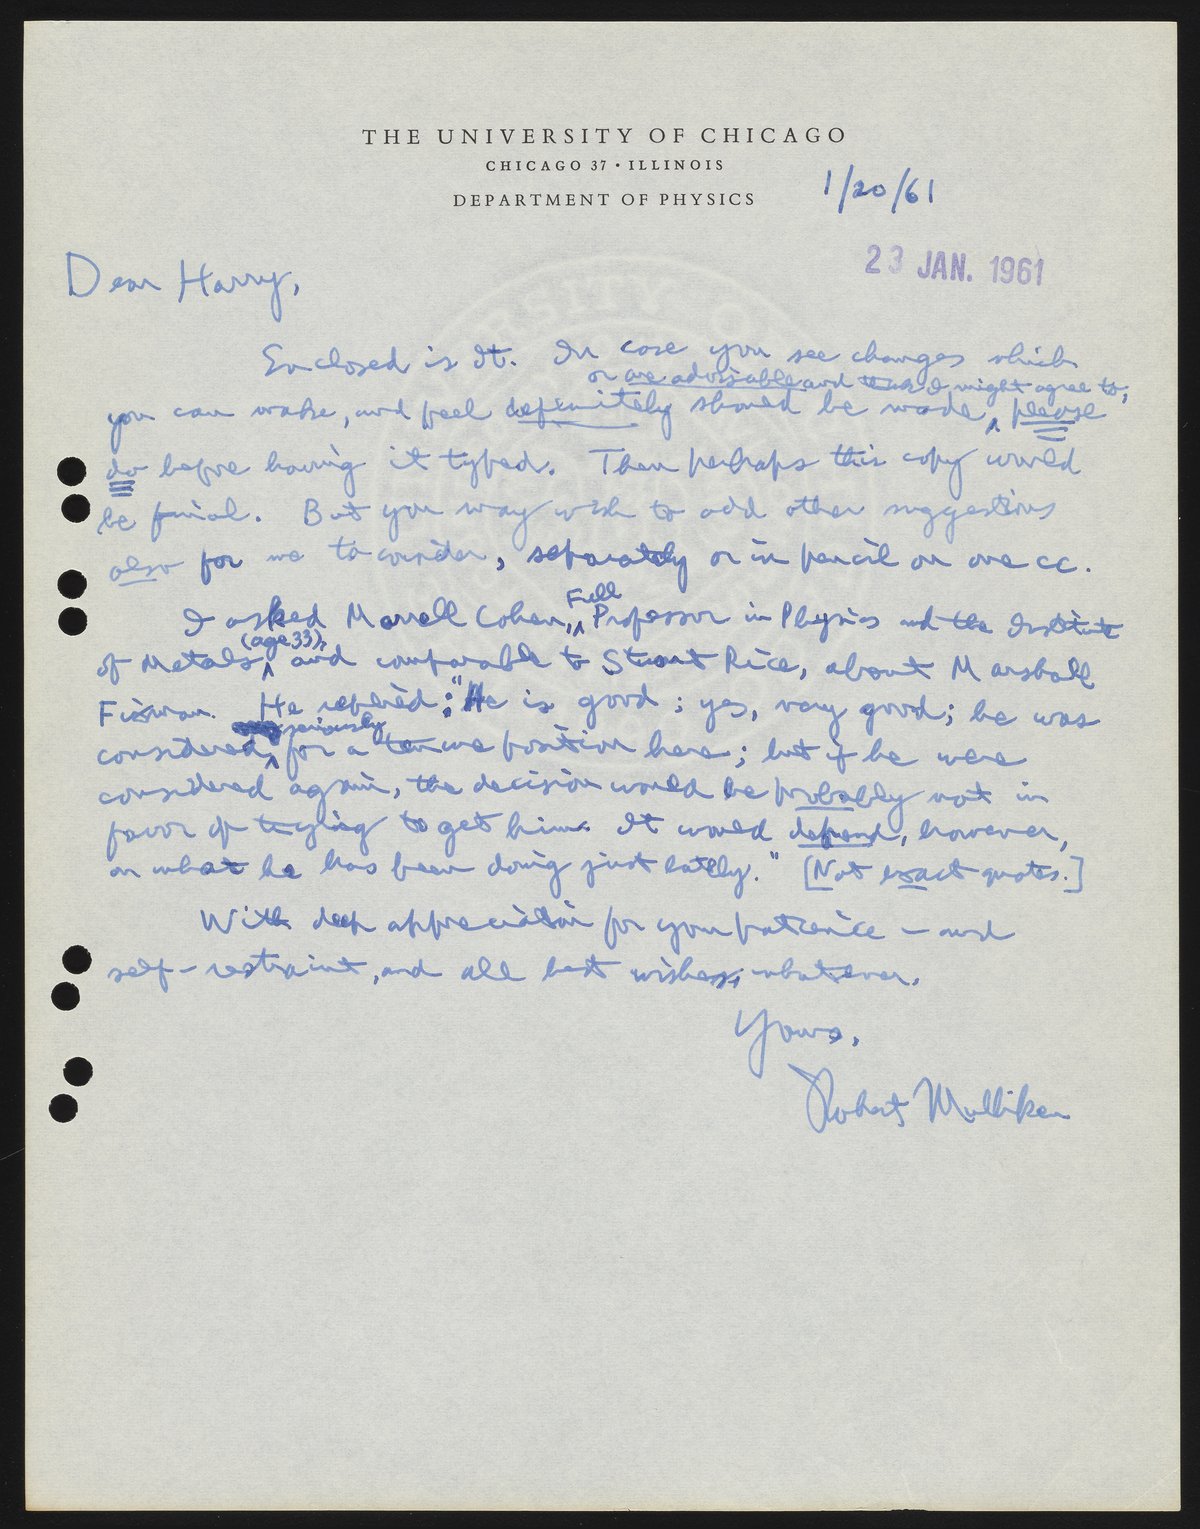 THE UNIVERSITY OF CHICAGO
CHICAGO 37 • ILLINOIS
DEPARTMENT OF PHYSICS
1/20/61
23 JAN. 1961
Dear Harry,
Enclosed is It. In case you see changes which
or are advisable and I might agree to,
you can make, and feel definitely should be made, please
do before having it typed. Then perhaps this copy would
be final. But you may wish to add other suggestions
also for me to consider, separately or in pencil on one cc.
I asked Morrell Cohen, Full Professor in Physics and the Institute
of Metals (age 33), and comparable to Stuart Rice, about Marshall
Fixman. He replied: "He is good; yes, very good; he was
considered seriously for a tenure position here; but if he were
considered again, the decision would be probably not in
favor of trying to get him. It would depend, however,
on what he has been doing just lately." [Not exact quotes.]
With deep appreciation for your patience – and
self-restraint, and all best wishes, whatever.
Yours,
Robert Mulliken